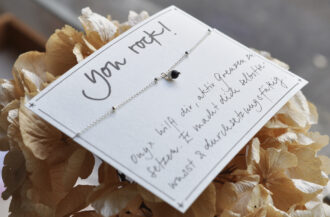 You rock!
Onyx hilft dir, aktiv Grenzen zu
setzen. Er macht dich selbstbe-
wusst & durchsetzungsfähig